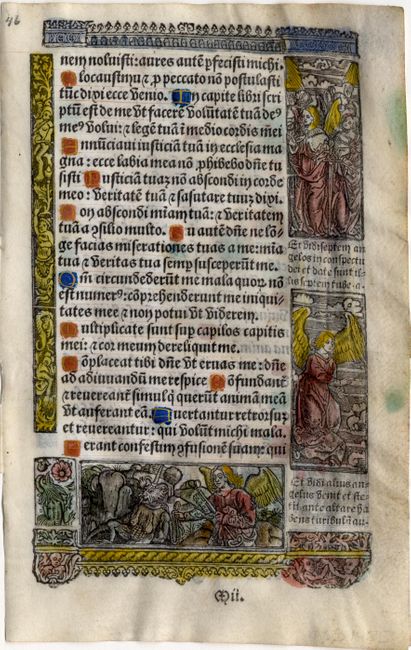 46
nem noluisti: aures autē ꝑfecisti michi.
olocaustuꝫ ⁊ ꝓ peccato nō postulasti
tūc dixi ecce venio. In capite libri scri
ptū est de me vt facerē volūtatē tuā de⁹
me⁹ volui: ⁊ legē tuā ī medio cordis mei
Annūciaui iusticiā tuā in ecclesia ma
gna: ecce labia mea nō ꝓhibebo dn̄e tu
scisti Iusticiā tuaꝫ nō abscondi in corde
meo: veritatē tuā ⁊ salutare tuuꝫ dixi.
Non abscondi miaꝫ tuā: ⁊ veritatem
tuam a ꝯsilio multo. Tu autē dn̄e ne lō
ge facias miserationes tuas a me: mīa
tua ⁊ veritas tua semꝑ susceperūt me.
Qm̄ circundederūt me mala quoꝝ nō
est numer⁹: cōprehenderunt me iniqui
tates mee ⁊ non potui vt viderem.
Multiplicate sunt suꝑ capilos capitis
mei: ⁊ cor meum dereliquit me.
Cōplaceat tibi dn̄e vt eruas me: dn̄e
ad adiuuandū me respice Cōfundant̄
⁊ reuereant̄ simul qͥ querūt animā meā
vt auferant eā. Conuertantur retrorsuꝫ
et reuereantur: qui volūt michi mala.
Ferant confestim ꝯfusionē suam: qui
Et vidi septem an
gelos in conspectu
dei et date sunt il-
lis septem tube. a.
Et vidi alius an-
gelus venit et ste-
tit ante altare ha
bens turibulū au-
Mii.